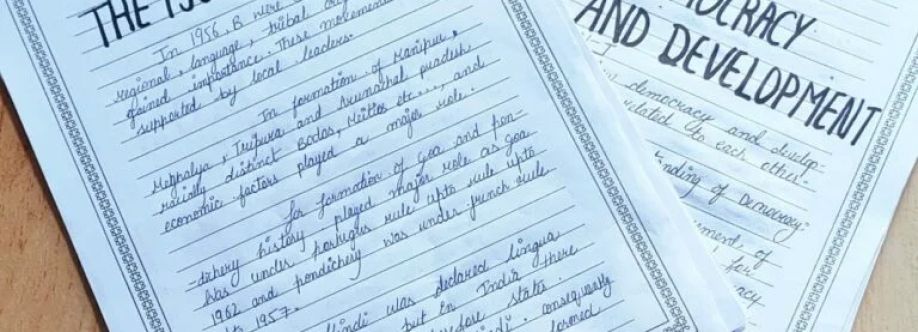 THE
In 1956, B were
regional, language, tribal
gained importance. These movement
supported by local leaders.
In formation of Manipur,
Meghalya, Tripura and Arunachal pradesh
racially distinct Bodos, etc..., and
economic factors played a major role.
for formation of Goa and pon-
-dichery history played major role as goa
was under portugles rule upto rule upto
1962 and pondichery was under french rule
1957.
Hindi was declared lingua
but in India there
state.
consequently
formed
OCRACY
AND DEVELOPMENT
democracy and develop-
related to each other.
nding of Democracy:
ment of
for
acy